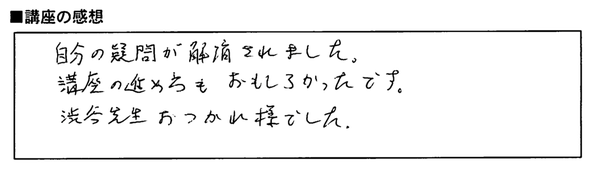 ■講座の感想
自分の疑問が解消されました。
講座の進め方も おもしろかったです。
渋谷先生 おつかれ様でした.